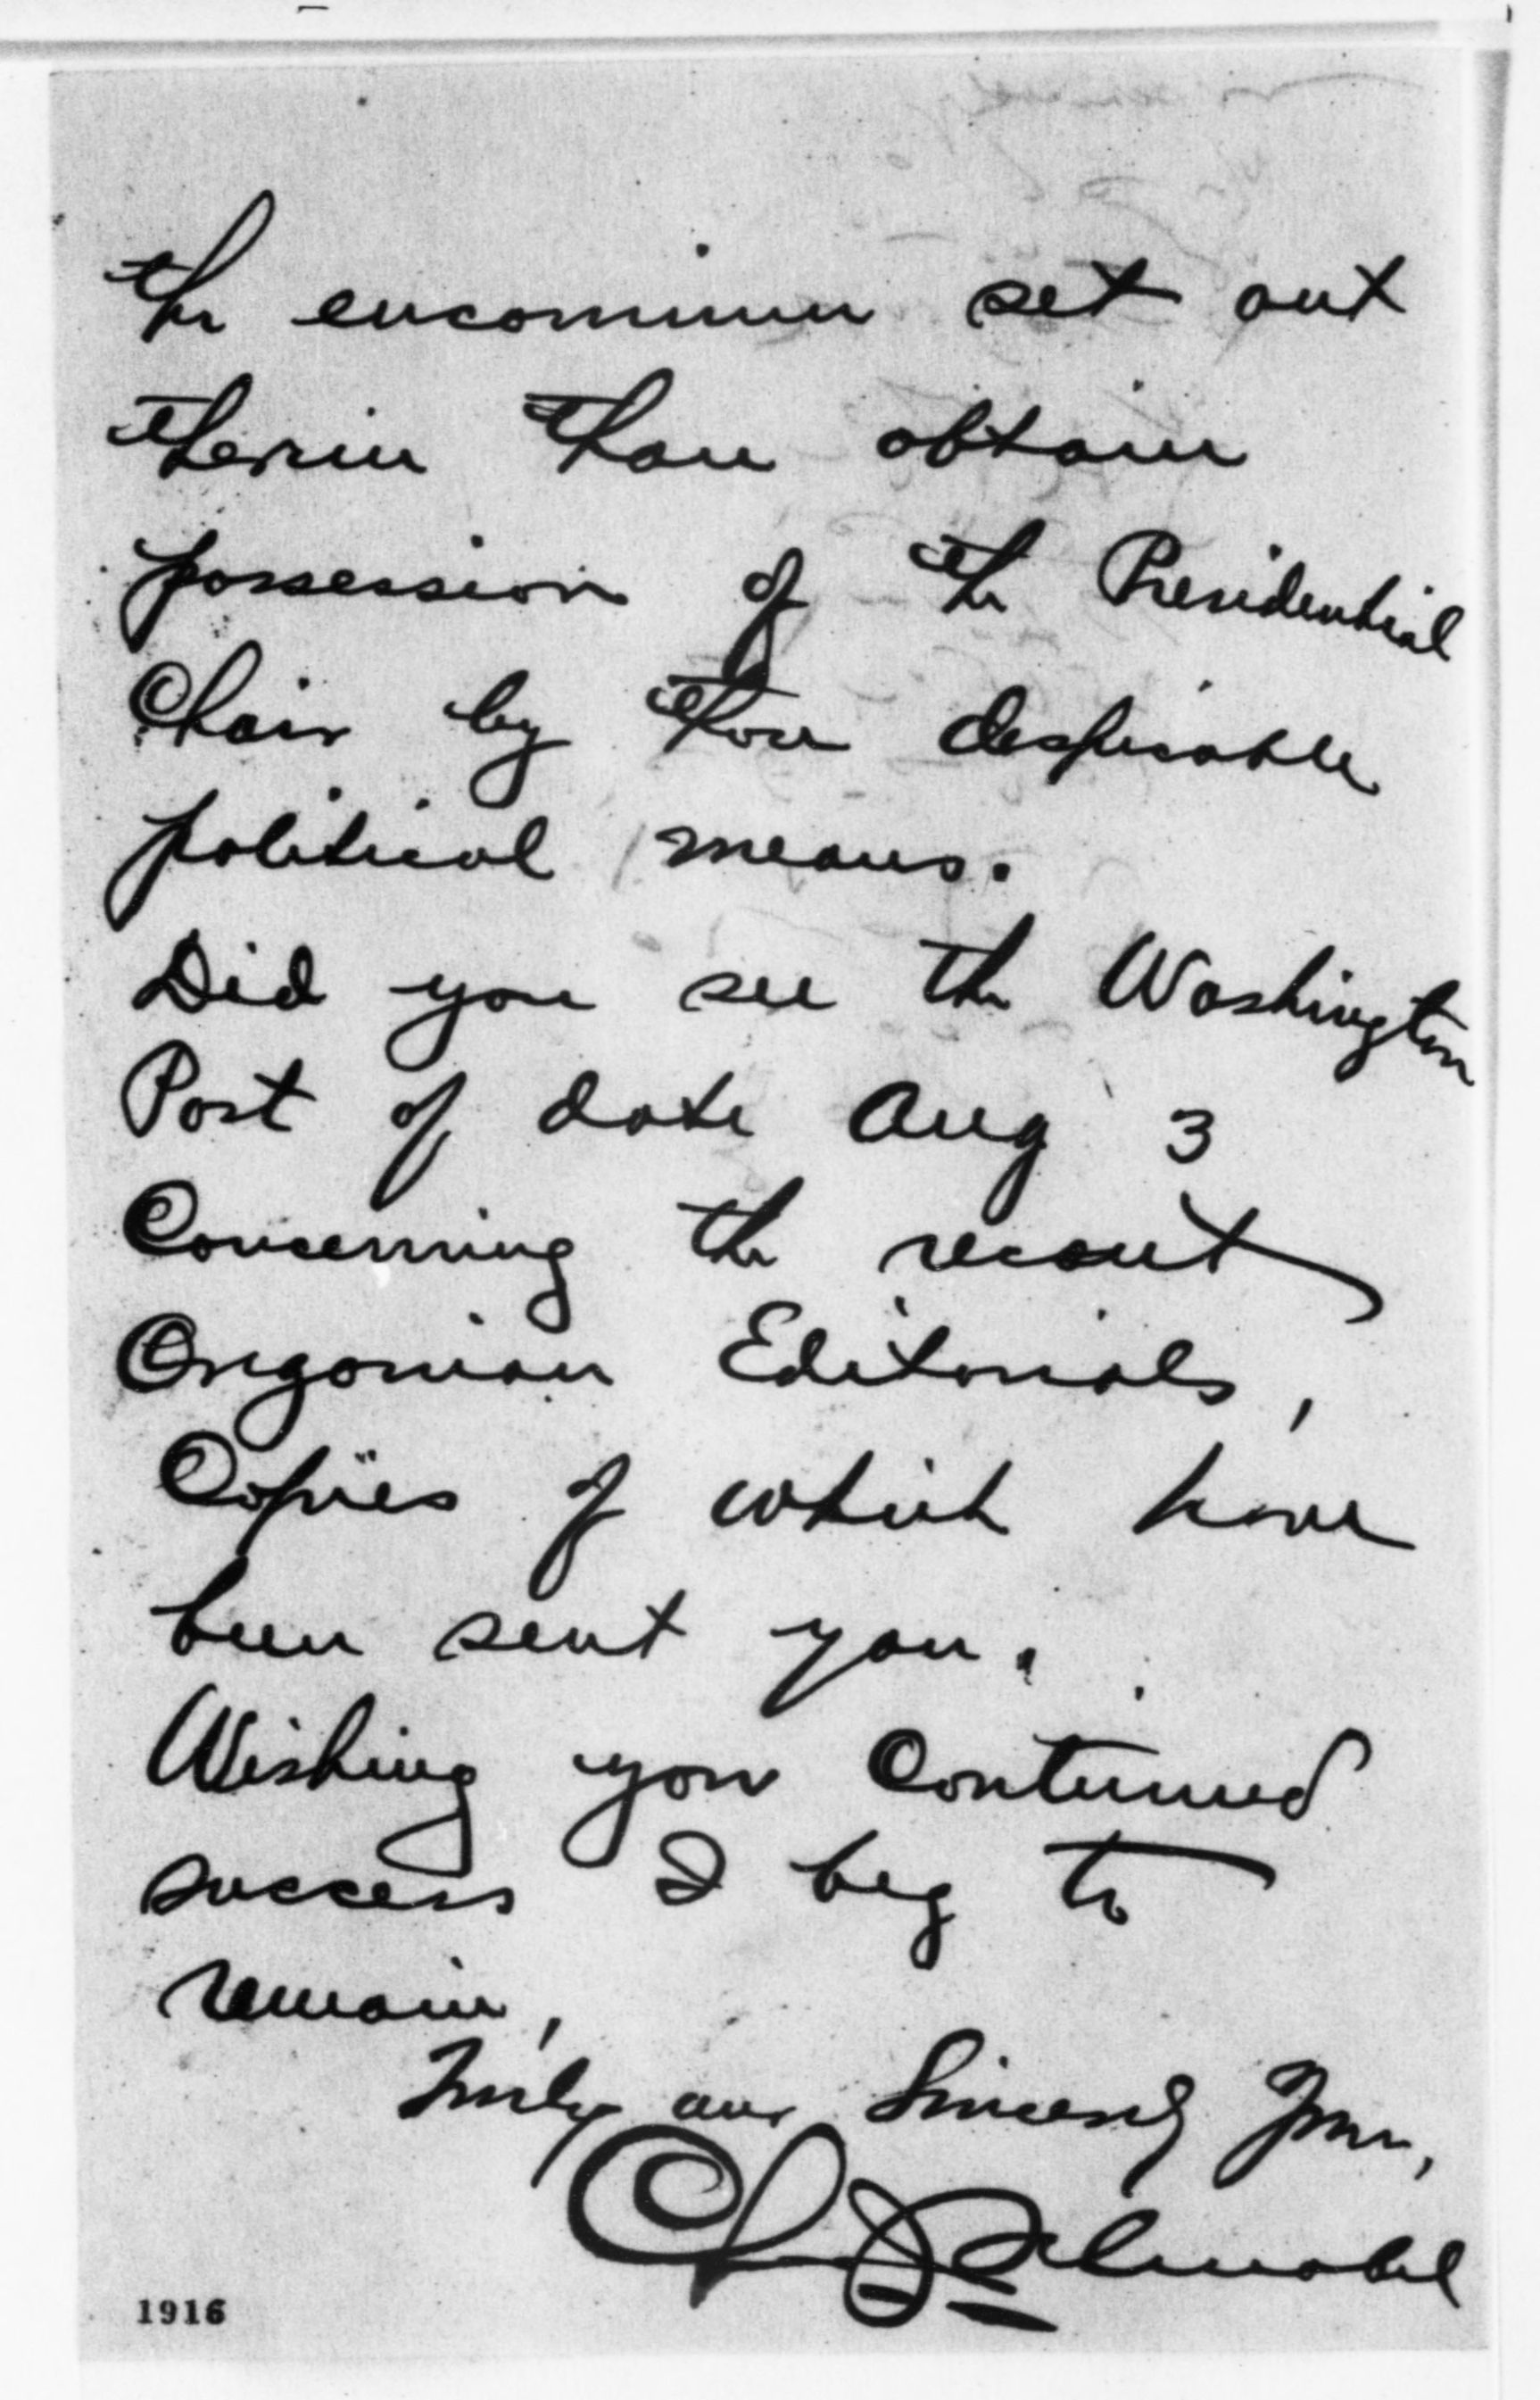 the encomium set out
therein than obtain
possession of the Presidential
Chair by those despisable
political means.
Did you see the Washington
Post of date Aug 3
Concerning the recent
Oregonian Editorials,
Copies of which have
been sent you.
Wishing you Continued
success I beg to
remain,
Truly and Sincerely Yours,
1916